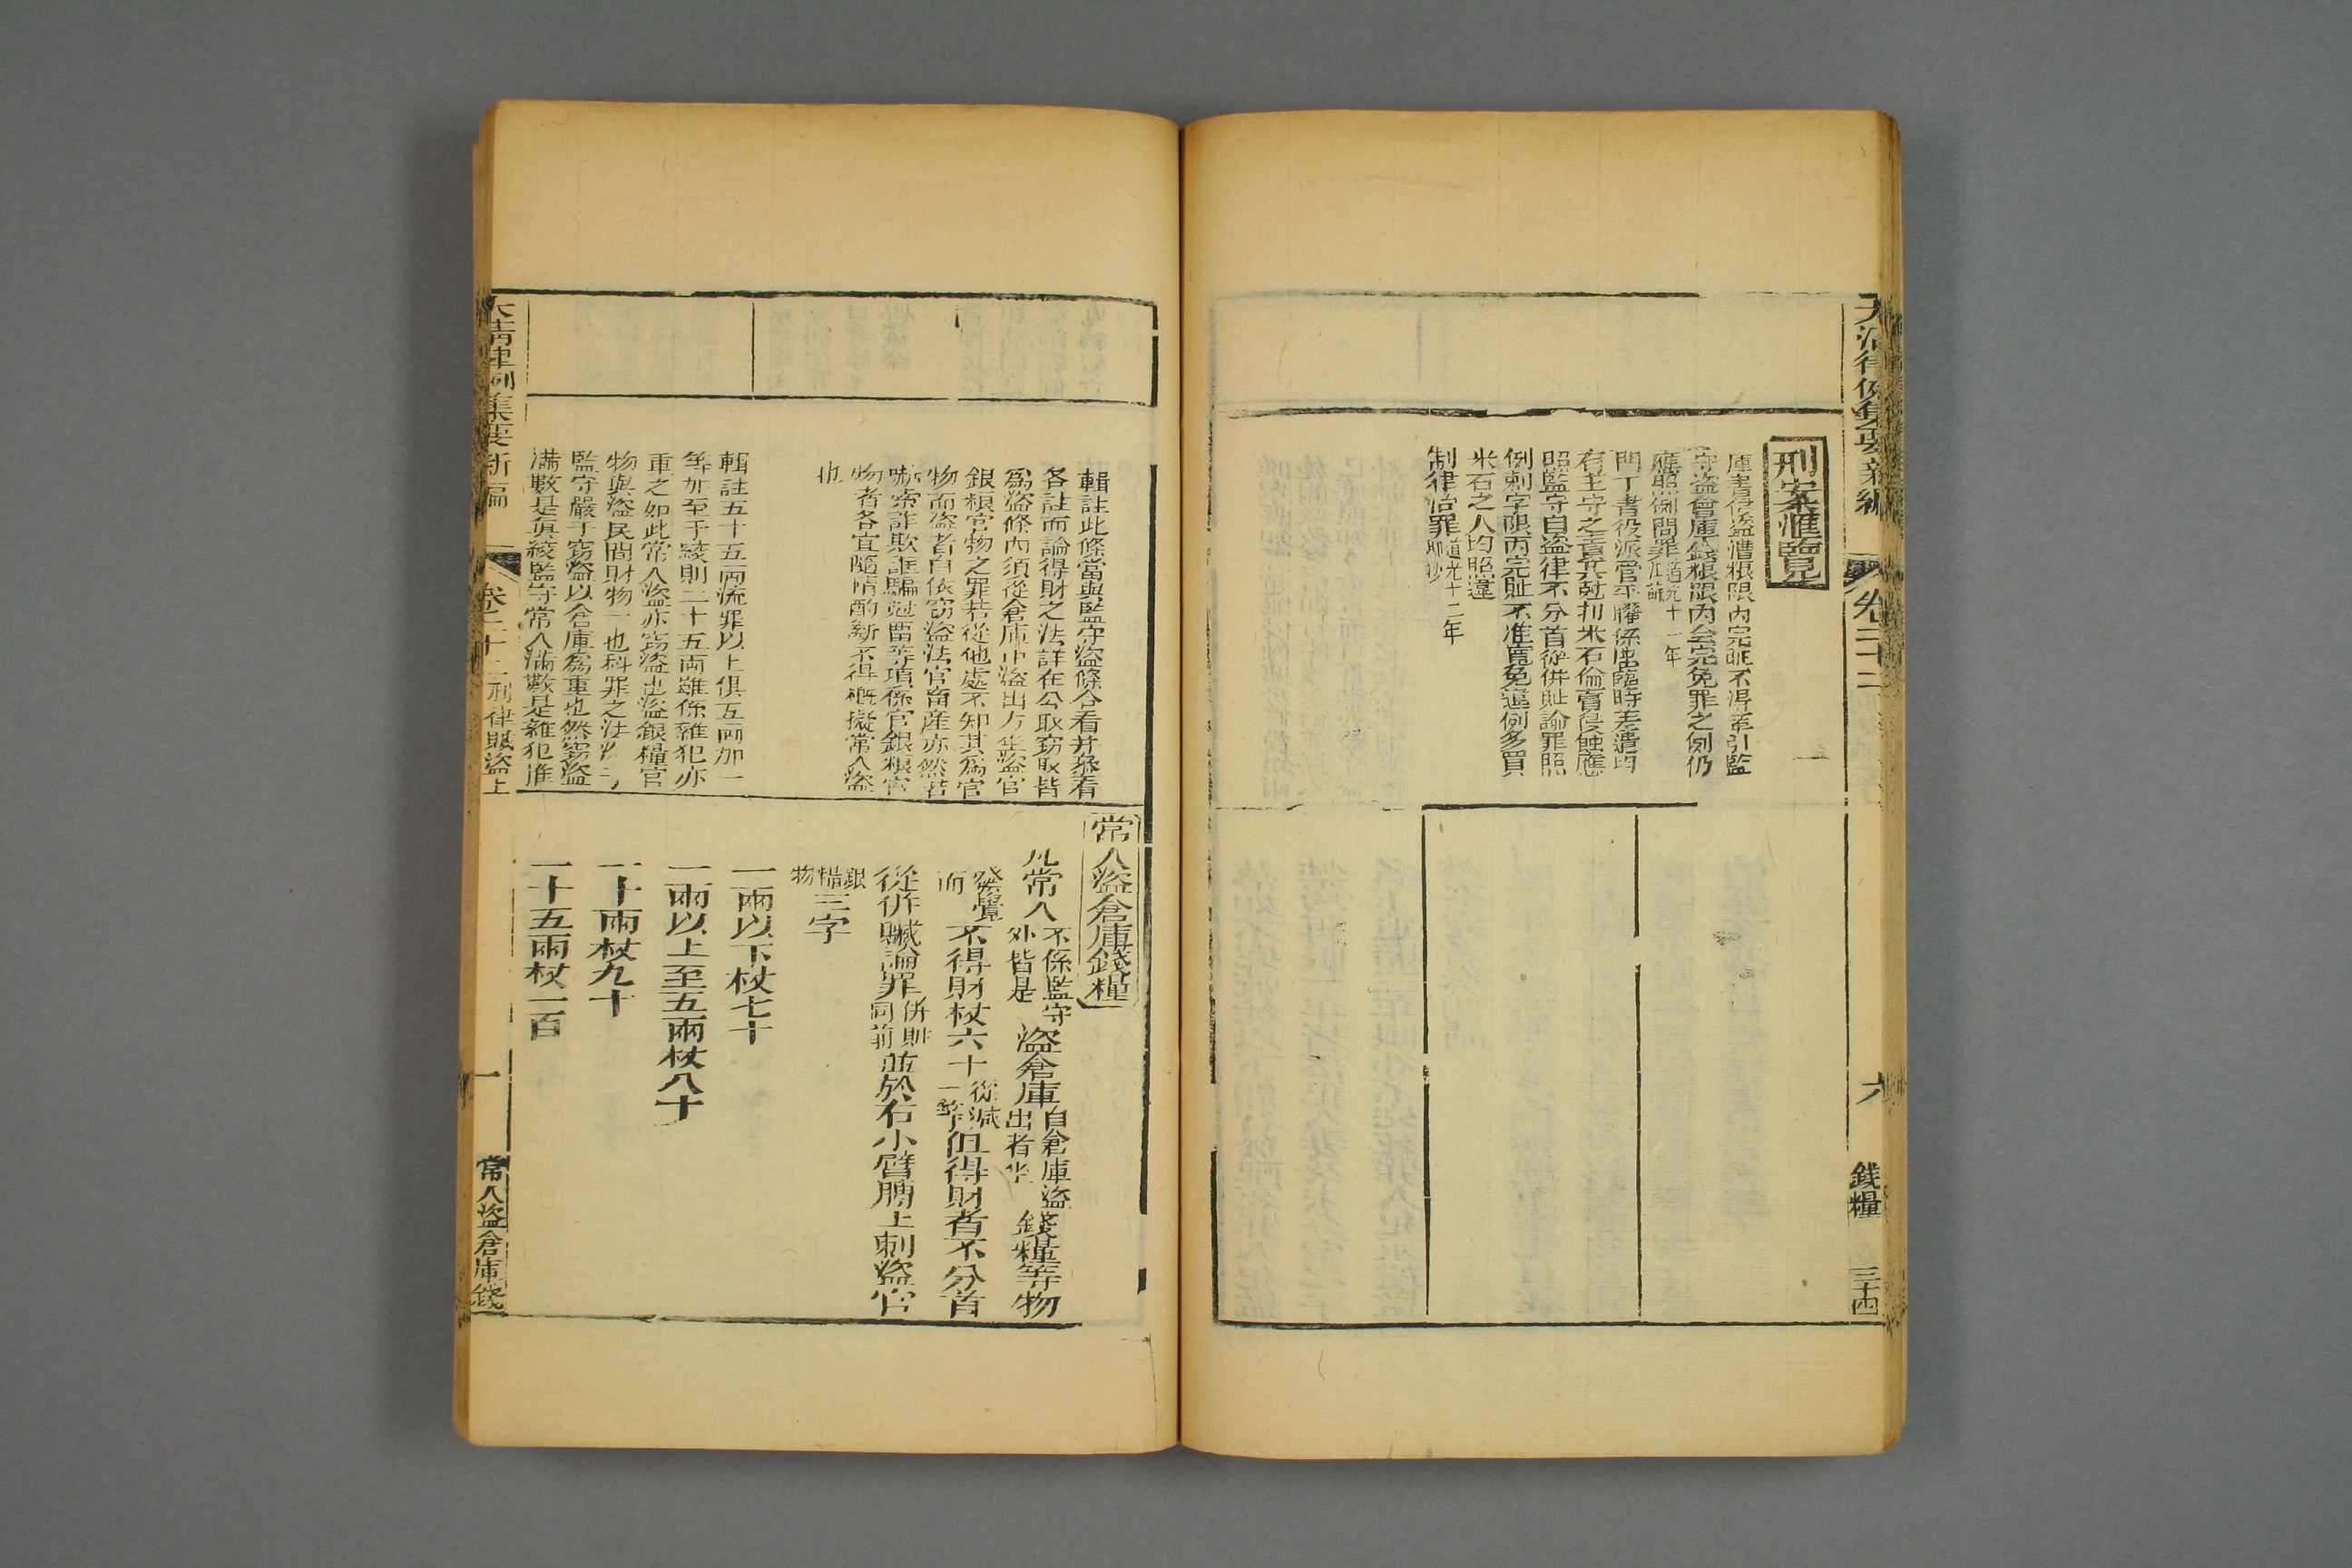 大清律例集要新編
卷二十二
六
錢糧
三十四
刑案滙覽
庫書侵盜漕粮限內完
不得牽引監
守盜倉庫錢粮限內全完免罪之例仍
應照例問罪道光十一年
門丁書役派管平糶係
臨時差遣均
有主守之責其尅扣米石偷賣侵蝕應
照監守自盜律不分首從併贓論罪照
例刺字限內完贓不准寬免違例多買
米石之人均照違
制律治罪道光十二年
輯註此條當與監守盜條合看并叅看
各註而論得財之法詳在公取竊取皆
爲盜條內須從倉庫中盜出方坐盜官
銀粮官物之罪若從他處不知其爲官
物而盜者自依竊盜法官畜産亦然若
嚇索詐欺誆騙尅畱等項係官銀粮官
物者各宜隨情酌斷不得概擬常人盜
也
輯註五十五兩流罪以上俱五兩加一
等加至于絞則二十五兩雖係雜犯亦
重之如此常人盜亦竊盜也盜銀糧官
物與盜民間財物一也科罪之法
監守嚴于竊盜以倉庫爲重也然竊盜
滿數是眞絞監守常人滿數是雜犯准
常人盜倉庫錢糧
凡常人不係監守外皆是盜倉庫自倉庫盜出者坐錢糧等物
發覺而不得財杖六十從減一等但得財者不分首
從併贓論罪併贓同前並於右小臂膊上刺盜官
銀糧物三字
一兩以下杖七十
一兩以上至五兩杖八十
一十兩杖九十
一十五兩杖一百
大清律例集要新編
卷二十二刑律賊盜上
一
常人盜倉庫錢